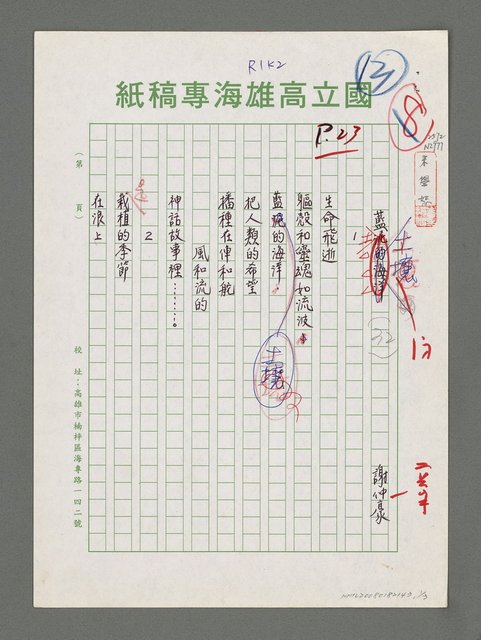 R1K2
13
18
國立高雄海專稿紙
P.23
2572
N2977
(第 頁)
藍色的海洋
土壤
32
謝仲豪
1
生命飛逝
軀殼和靈魂如流波
藍色的海洋
土壤
把人類的希望
播種在傳和航
風和流的
神話故事裡……。
2
栽植的季節
在浪上
校址:高雄市楠梓區海專路一四二號
NMTL20080182143, 1/3